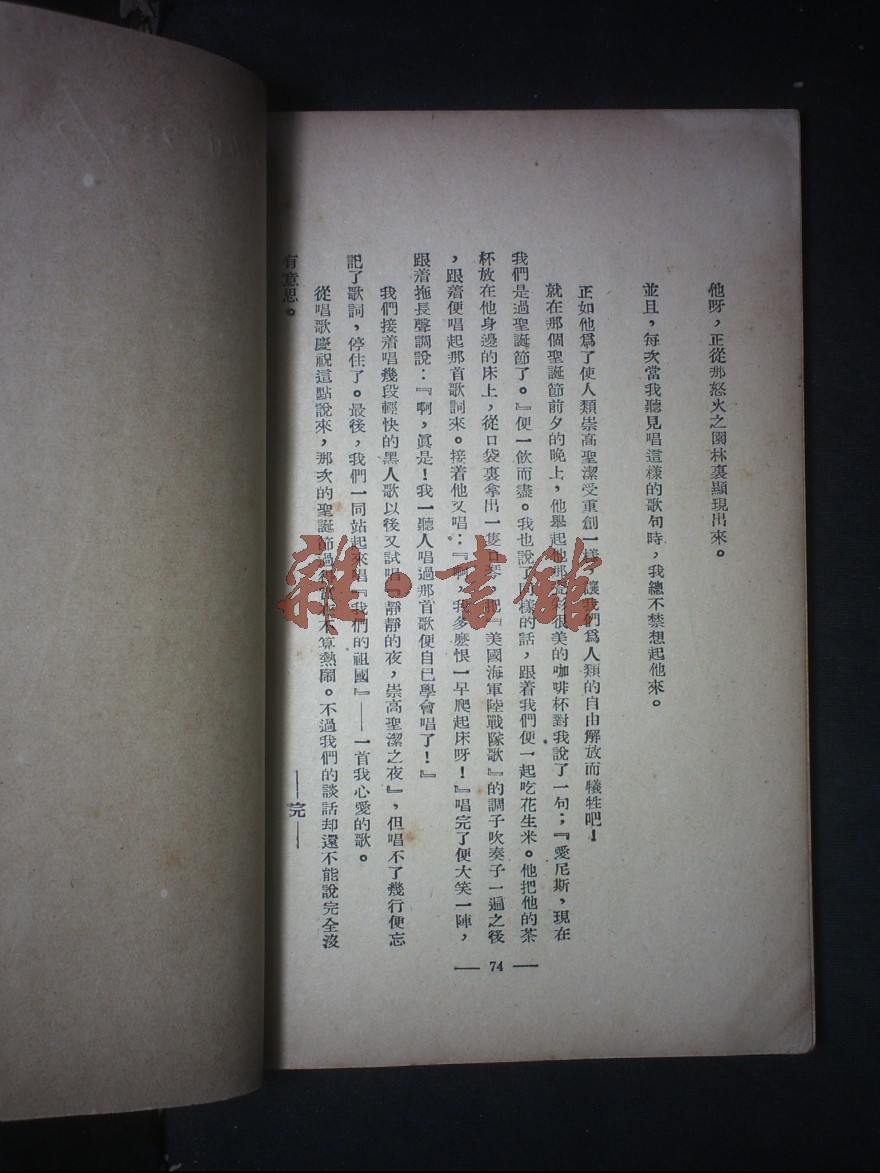 他呀，正從那怒火之園林裏顯現出來。
並且，每次當我聽見唱這樣的歌句時，我總不禁想起他來。
正如他爲了使人類崇高聖潔受重創一樣，讓我們爲人類的自由解放而犧牲吧！
就在那個聖誕節前夕的晚上，他舉起他那 很美的咖啡杯對我說了一句；『愛尼斯，現在
我們是過聖誕節了。』便一飲而盡。我也說了同樣的話，跟着我們便一起吃花生米。他把他的茶
杯放在他身邊的床上，從口袋裏拿出一隻口琴，把『美國海軍陸戰隊歌』的調子吹奏子一遍之後
，跟着便唱起那首歌詞來。接着他又唱：『啊，我多麽恨一早爬起床呀！』唱完了便大笑一陣，
跟着拖長聲調說：『啊，眞是！我一聽人唱過那首歌便自己學會唱了！』
我們接着唱幾段輕快的黑人歌以後又試唱『靜靜的夜，崇高聖潔之夜』，但唱不了幾行便忘
記了歌詞，停住了。最後，我們一同站起來唱『我們的祖國』——一首我心愛的歌。
從唱歌慶祝這點說來，那次的聖誕節過 不算熱鬧。不過我們的談話却還不能說完全沒
有意思。
——完——
— 74 —
雜·書館